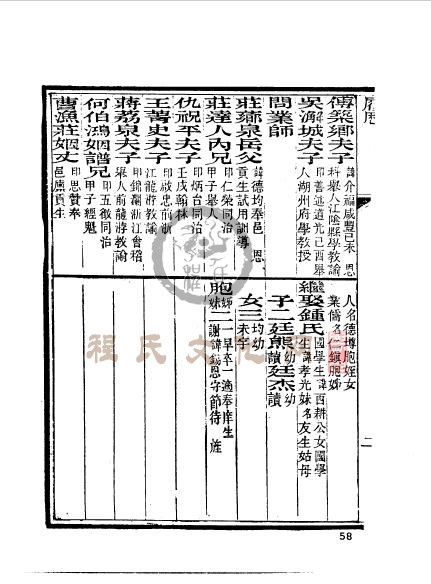 履歷
傅榘鄉夫子 諱介福咸豐己未恩
科舉人江陰縣學教諭
吳瀞城夫子 印善述道光己酉舉
人湖州府學教授
問業師
莊薌泉岳父 諱德均奉邑恩
貢生試用訓導
莊達人內兄 印仁榮同治
甲子舉人
仇祝平夫子 印炳台同治
壬戌翰林
王菁史夫子 印啟忠前浙
江龍游教諭
蔣荔泉夫子 印錦瀾浙江會稽
舉人前龍游教諭
何伯鴻姻譜兄 印五徵同治
甲子經魁
曹漁莊姻丈 印思贊奉
邑廩貢生
人名德塼胞姪女
業儒名仁鎮胞姊
繼娶鍾氏 國學生諱西耕公女國學
生諱孝光妹名友生姑母
子二廷熊幼讀廷杰幼讀
女三均幼未字
胞姊妹二 一早卒一適奉庠生
謝諱錫恩守節待旌
二
58
程氏文化網